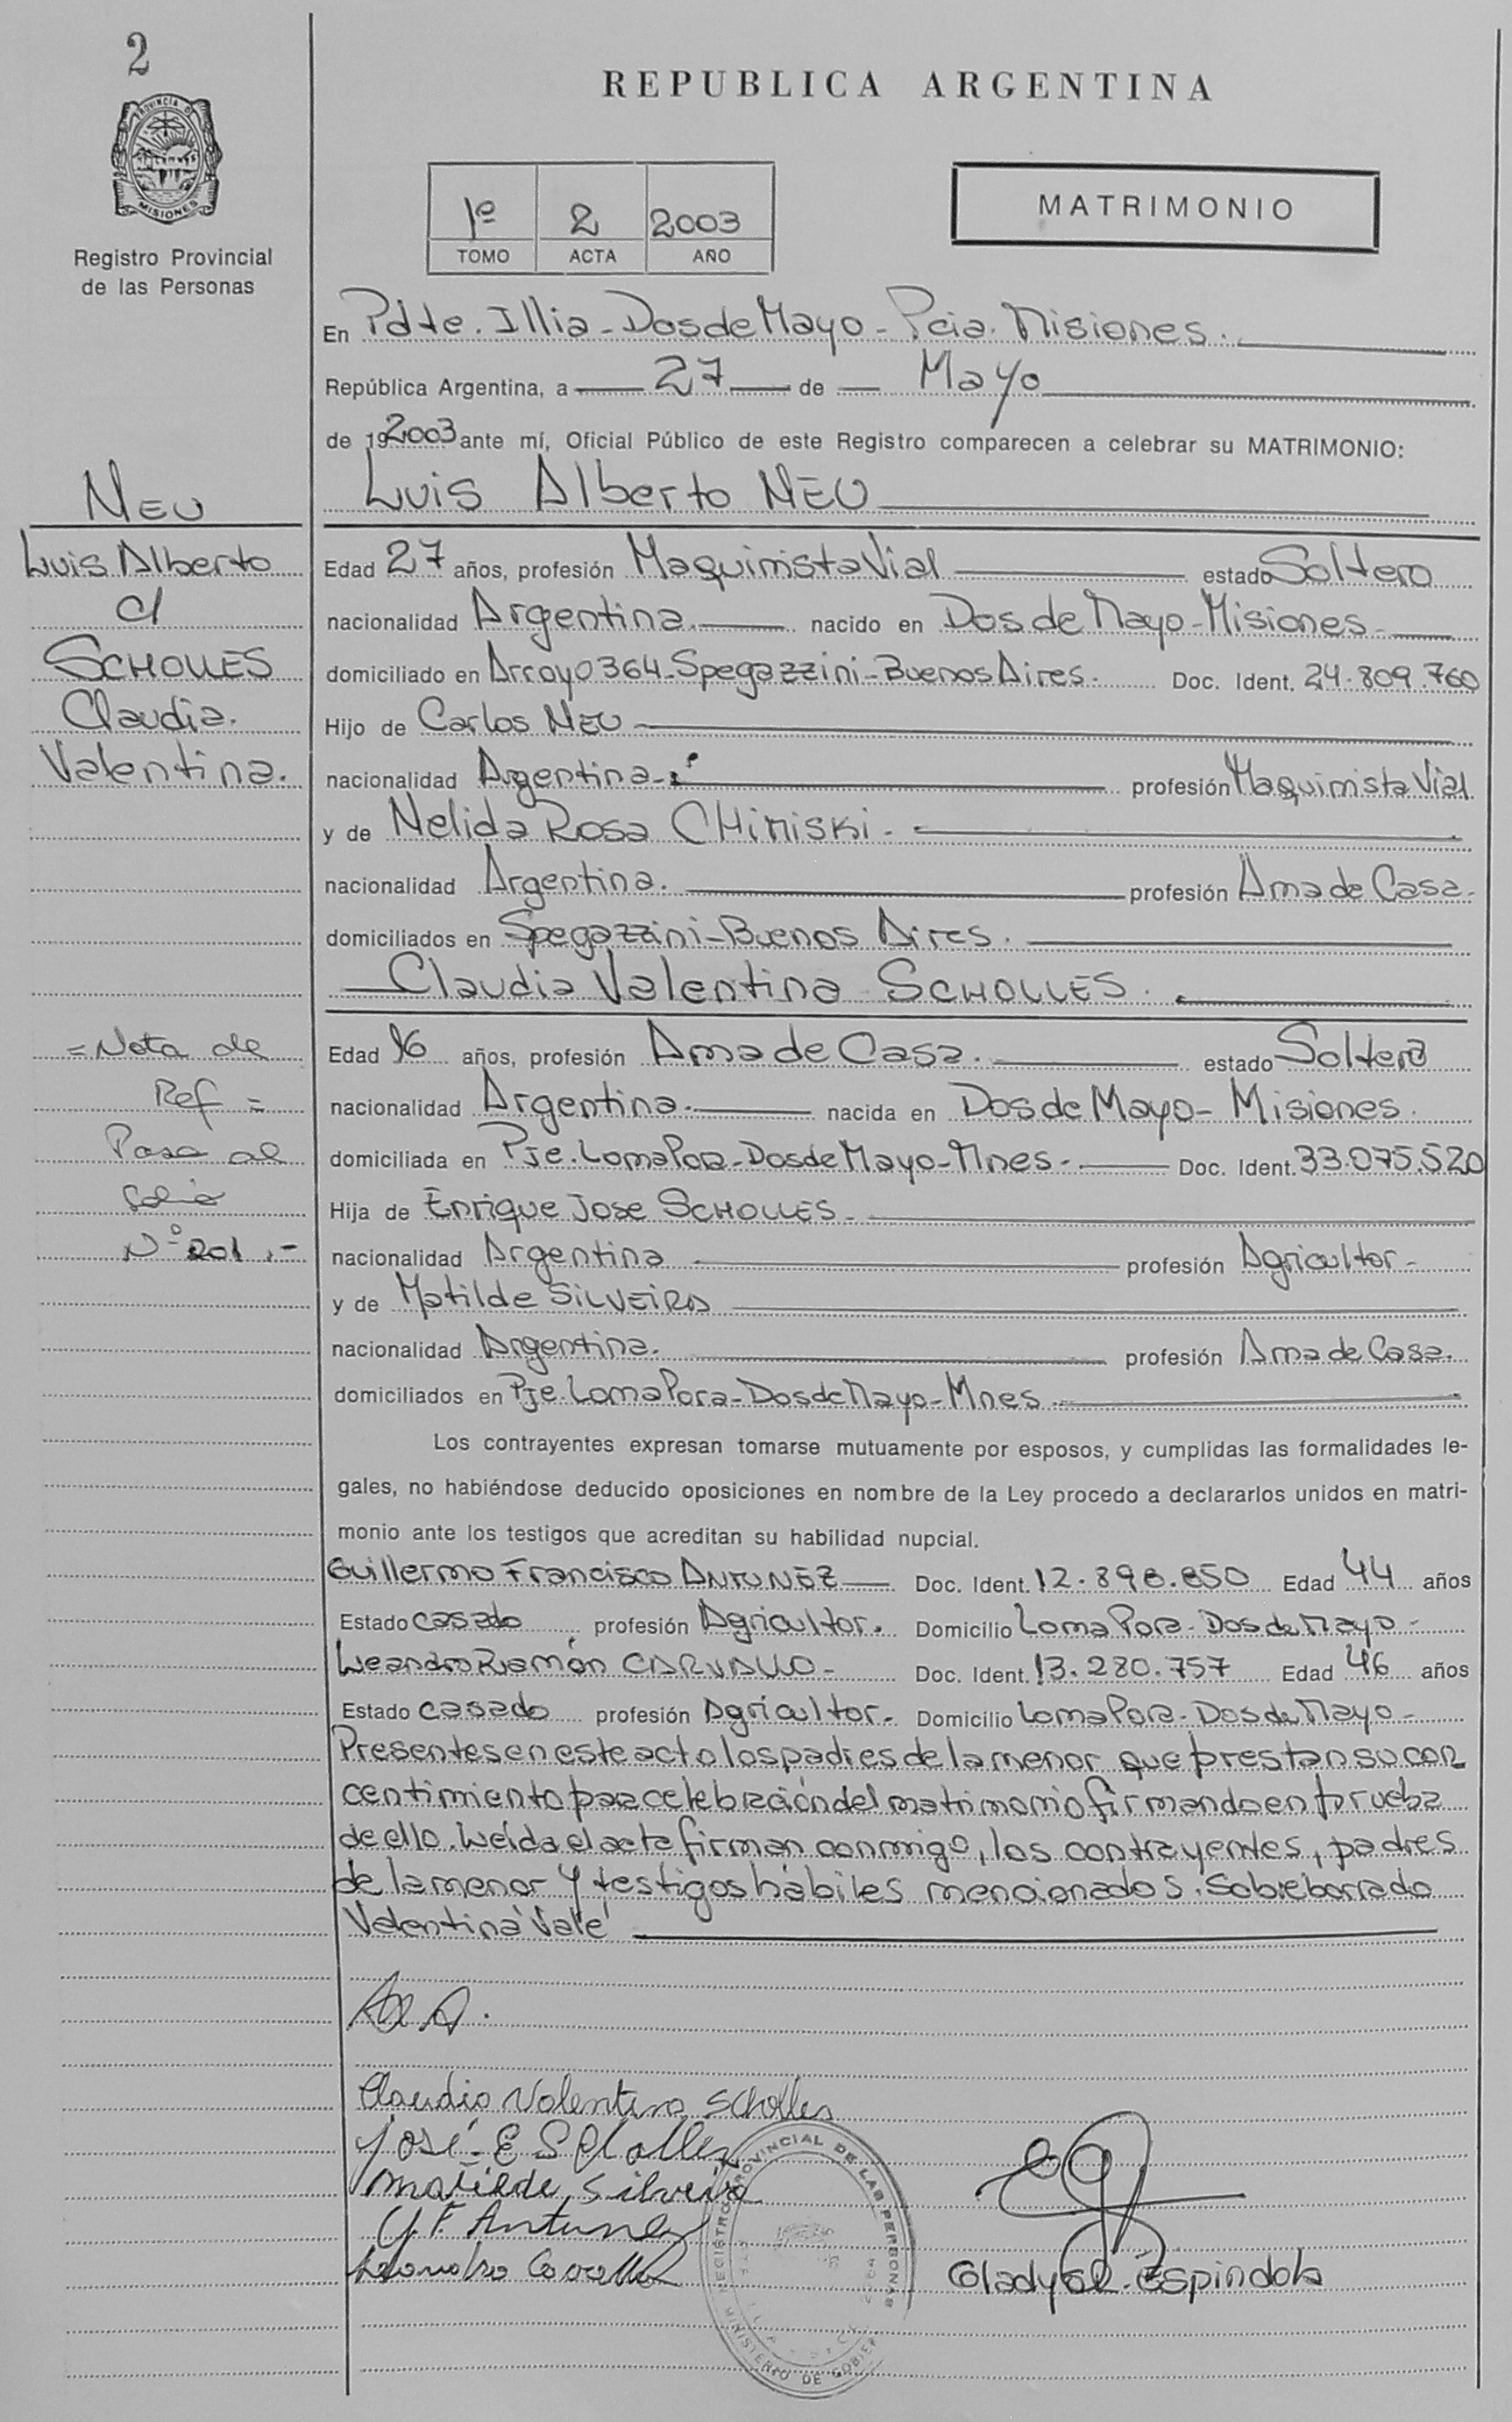 2
PROVINCIA D
MISIONES
Registro Provincial
de las Personas
REPUBLICA ARGENTINA
1º 2 2003
TOMO ACTA AÑO
MATRIMONIO
En Pdte. Illia - Dos de Mayo - Pcia. Misiones.
República Argentina, a 27 de Mayo
de 19 2003 ante mí, Oficial Público de este Registro comparecen a celebrar su MATRIMONIO:
Luis Alberto NEU
Edad 27 años, profesión Maquinista Vial estado Soltero
nacionalidad Argentina. nacido en Dos de Mayo - Misiones
domiciliado en Arroyo 364 - Spegazzini - Buenos Aires. Doc. Ident. 24.809.760
Hijo de Carlos NEU
nacionalidad Argentina - profesión Maquinista Vial
y de Nelida Rosa CHIMISKI -
nacionalidad Argentina. profesión Ama de Casa.
domiciliados en Spegazzini - Buenos Aires.
Claudia Valentina SCHOLLES.
Edad 16 años, profesión Ama de Casa. estado Soltera
nacionalidad Argentina. nacida en Dos de Mayo - Misiones.
domiciliada en Pje. Loma Pora - Dos de Mayo - Mnes - Doc. Ident. 33.075.520
Hija de Enrique Jose SCHOLLES -
nacionalidad Argentina profesión Agricultor -
y de Matilde SILVEIRA
nacionalidad Argentina. profesión Ama de Casa.
domiciliados en Pje. Loma Pora - Dos de Mayo - Mnes.
Los contrayentes expresan tomarse mutuamente por esposos, y cumplidas las formalidades le-
gales, no habiéndose deducido oposiciones en nombre de la Ley procedo a declararlos unidos en matri-
monio ante los testigos que acreditan su habilidad nupcial.
Guillermo Francisco ANTUNEZ Doc. Ident. 12.898.850 Edad 44 años
Estado casado profesión Agricultor. Domicilio Loma Pora - Dos de Mayo -
Leandro Ramón CARVALLO - Doc. Ident. 13.280.757 Edad 46 años
Estado casado profesión Agricultor - Domicilio Loma Pora - Dos de Mayo -
Presentes en este acto los padres de la menor que prestan su con
centimiento para celebración del matrimonio firmando en prueba
de ello. Leida el acta firman conmigo, los contrayentes, padres
de la menor y testigos hábiles mencionados. Sobreborrado
"Valentina" Vale
Claudia Valentina Scholles
José E Scholles
Matilde Silveira
G. F. Antunez
Leandro Carvallo
REGISTRO PROVINCIAL DE LAS PERSONAS
MINISTERIO DE GOBIER
Gladys E. Espindola
NEU
Luis Alberto
c/
SCHOLLES
Claudia.
Valentina.
= Nota de
Ref =
Pasa al
folio
Nº 201.-